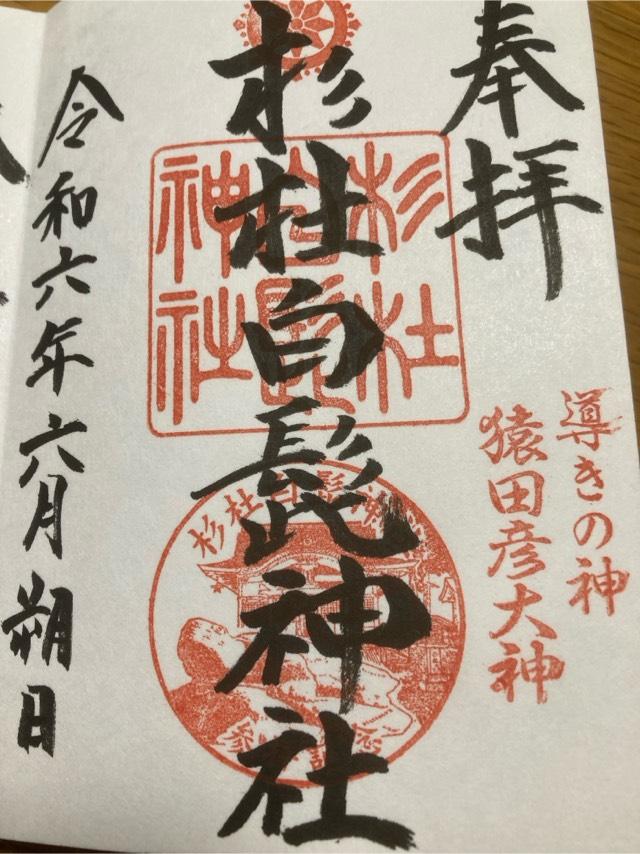 奉拝
導きの神
猿田彦大神
杉杜白髭神社
杉杜
白髭
神社
杉杜白髭神
令和六年六月朔日